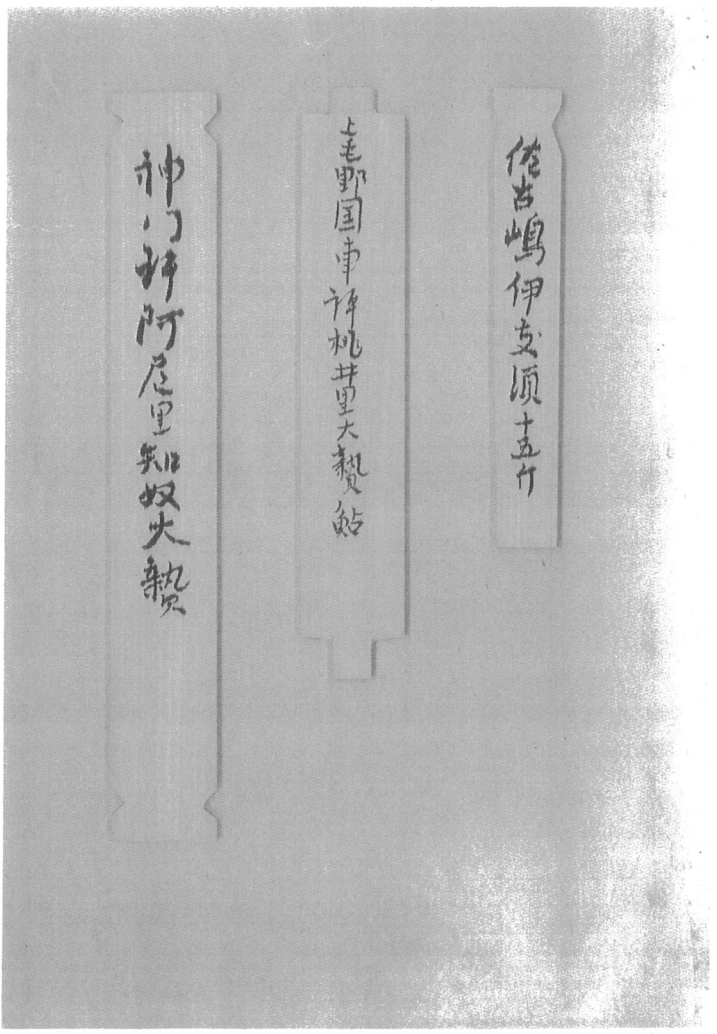 佐古嶋伊支須十五斤
上毛野国車評桃井里大贄鮎
神門評阿尼里知奴大贄